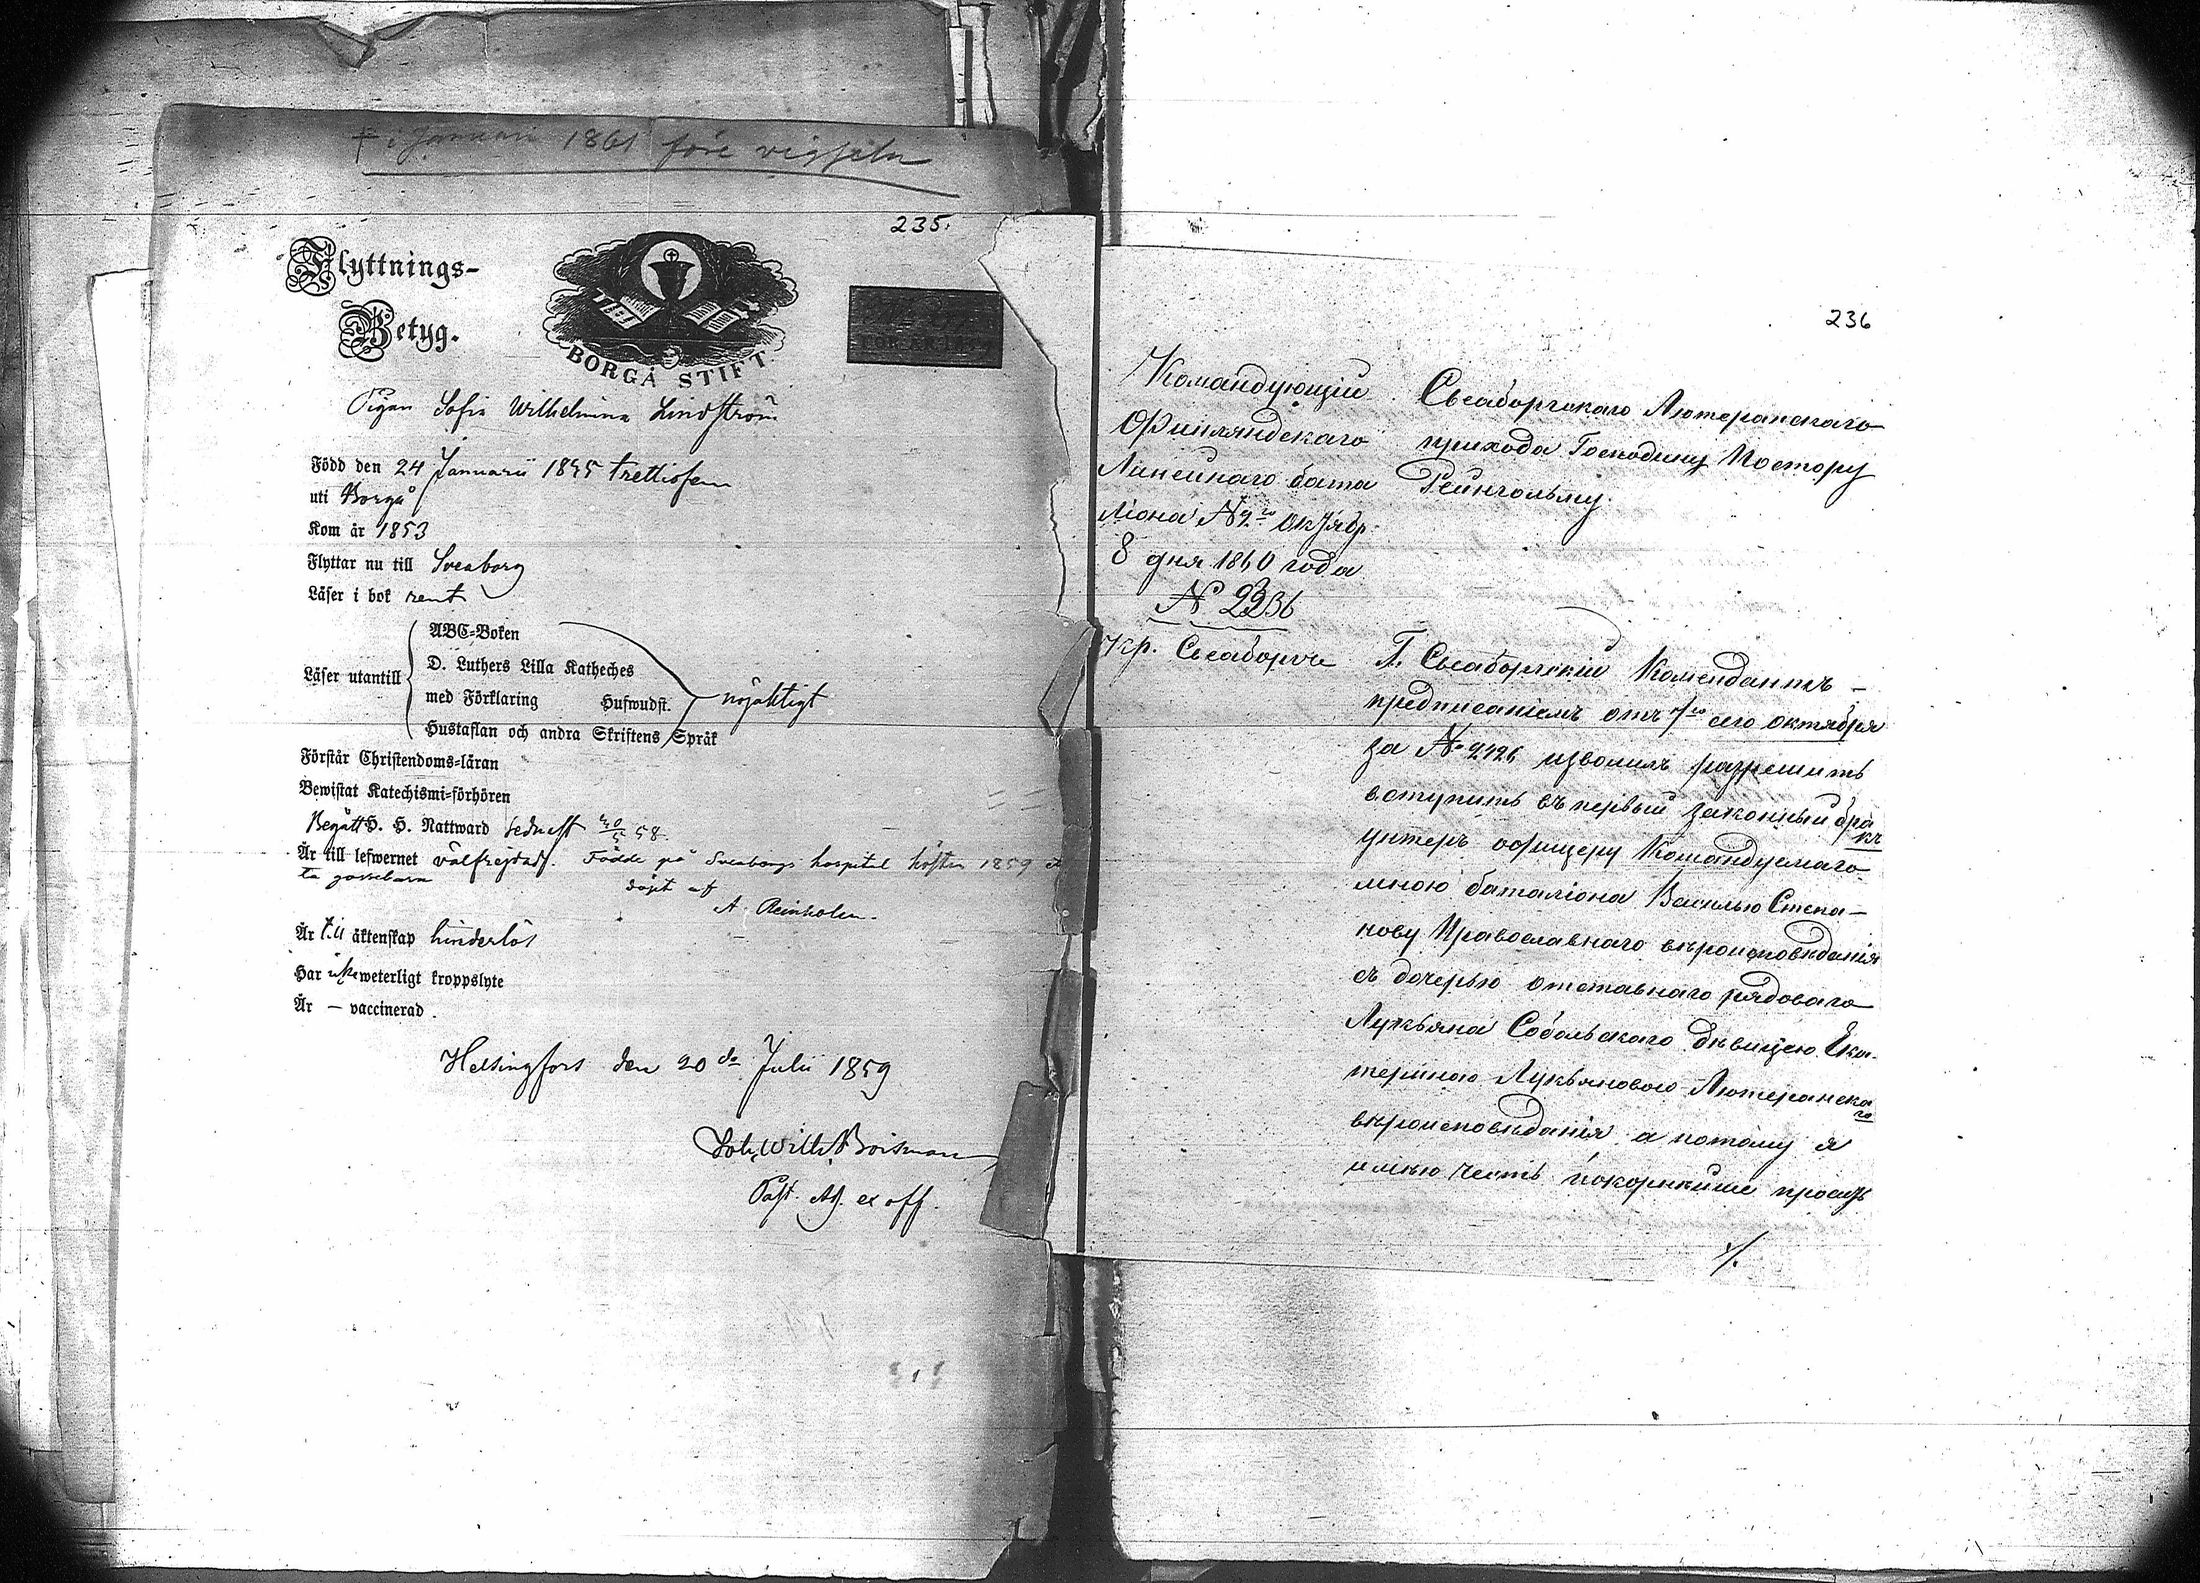 † i Januari 1861 före vigseln
235.
Flyttnings-
Betyg.
BORGÅ STIFT
Pigan Sofia Wilhelmina Lindström
Född den 24 Januarii 1835 trettiofem
uti Borgå
Kom år 1853
Flyttar nu till Sveaborg
Läser i bok rent
Läser utantill
ABC-Boken
D. Luthers Lilla Katheches
med Förklaring Hufwudst.
Hustaflan och andra Skriftens Språk
nöjaktigt
Förstår Christendoms-läran
Bewistat Katechismi-förhören
Begått H. H. Nattward sednast 58.
Är till lefwernet välfrejdad. Födde på Sveaborgs hospital hösten 1859 et
ta gossebarn döpt af
A. Reinholm.
Är till äktenskap hinderlös
Har icke weterligt kroppslyte
Är — vaccinerad
Helsingfors den 20de Julii 1859
Joh. Wilh. Boisman
Past. Adj. ex off.
236
Командующій
Финляндскаго
Линейнаго бата
ліона № 2го Октябр.
8 дня 1860 года
№ 2336
Кр. Свеаборгъ
Свеаборгскаго Лютеранскаго
прихода Господину Пастору
Рейнгольму.
Г. Свеаборгскій Комендантъ —
предписаніемъ отъ 7го сего октября
за № 2426 изволилъ разрешить
вступить въ первый законный бра
къ
унтеръ офицеру Командуемаго
мною баталіона Василью Степа—
нову Православнаго вѣроисповѣданія
съ дочерью отставнаго рядоваго
Лукьяна Собольскаго дѣвицею Ека-
териною Лукьяновою Лютеранска
го
вѣроисповѣданія, а потому я
имѣю честь покорнѣйше просить
./.